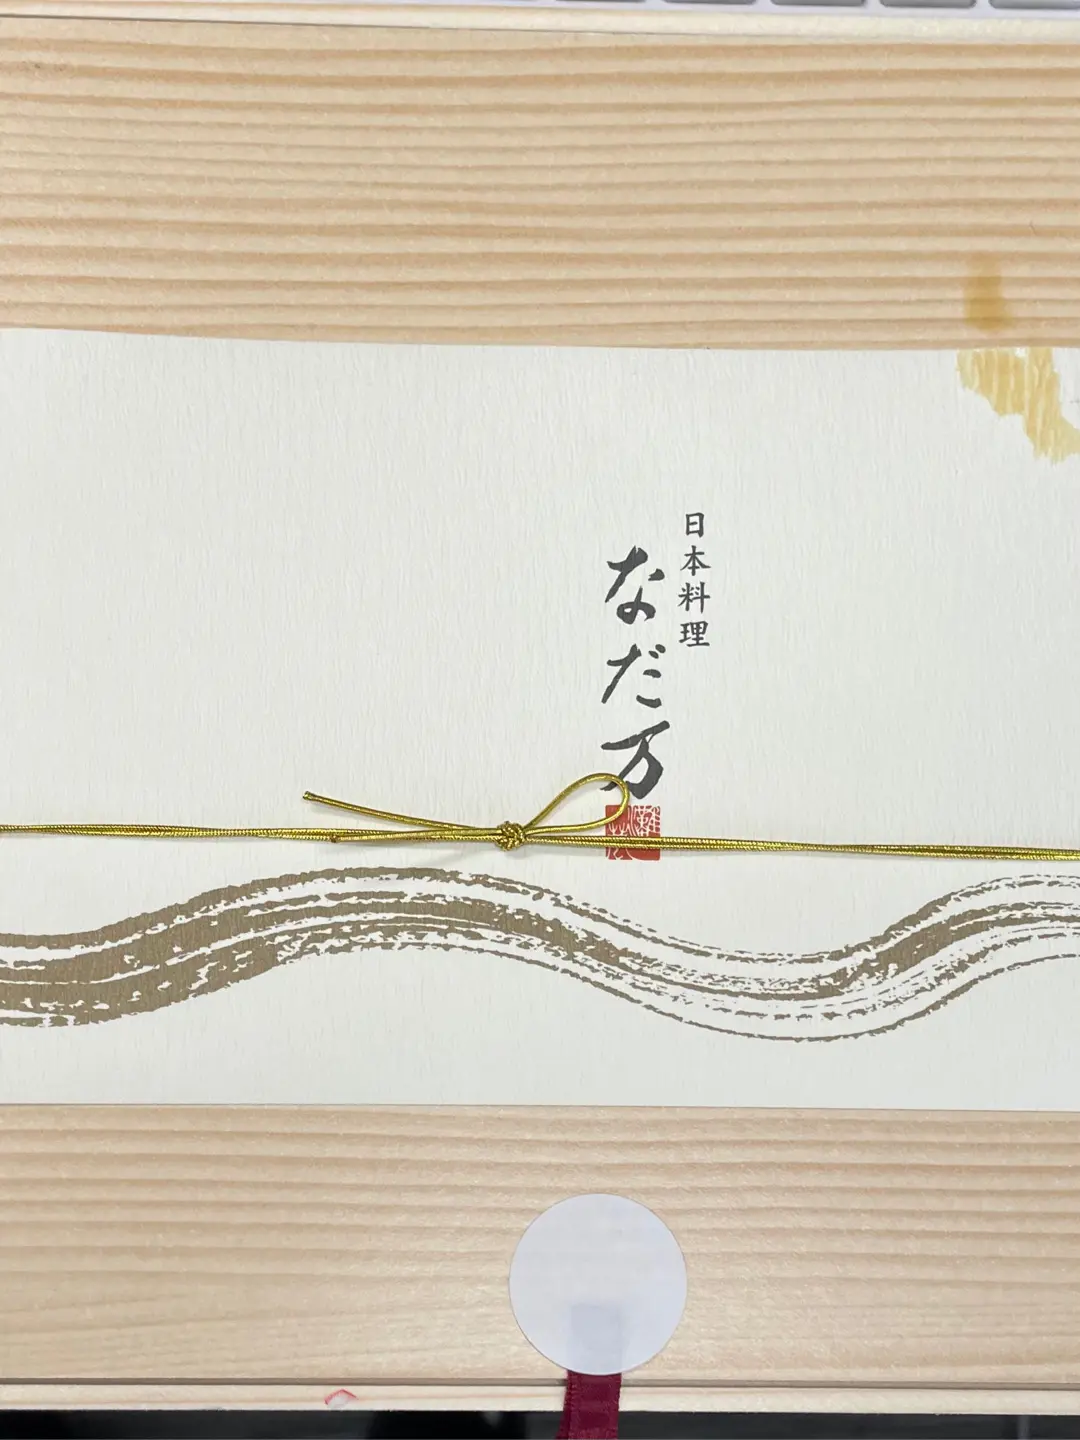 日本料理
なだ万